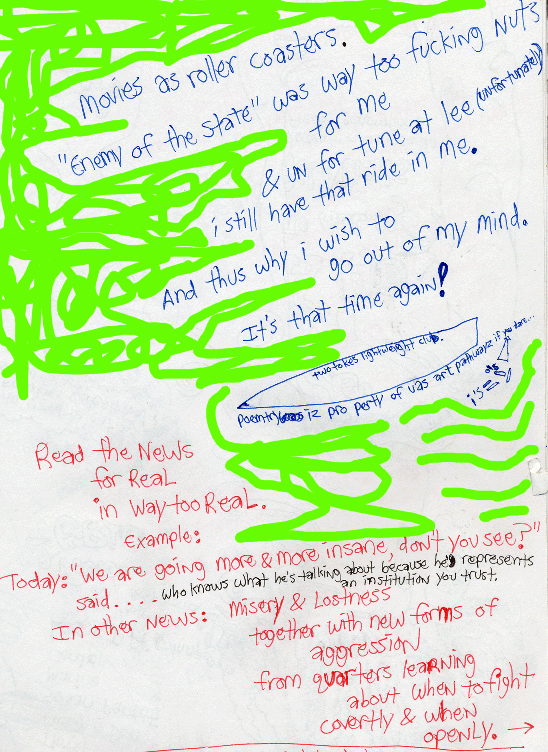 Movies as roller coasters.
"Enemy of the State" was way too fucking nuts
for me
& un for tune at lee (unfortunately)
i still have that ride in me.
And thus why i wish to
go out of my mind.
It's that time again!
two tokes lightweight club.
poemtry iz pro perty of uas art pathwayz if you dare...
i's = us
Read the News
for Real
in Way too Real.
Example:
Today: "We are going more & more insane, don't you see?"
said.... who knows what he's talking about because he represents
an institution you trust.
In other News: Misery & Lostness
together with new forms of
aggression
from quarters learning
about when to fight
covertly & when
openly. →